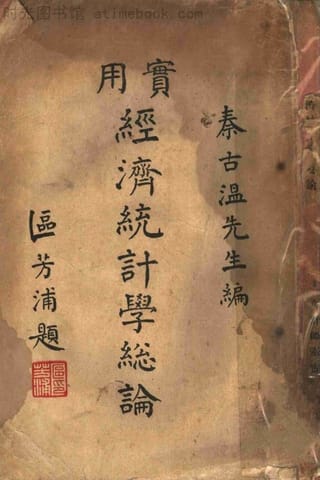 时光图书馆 - atimebook.com
秦古温先生編
實用
經濟統計學総論
區芳浦題